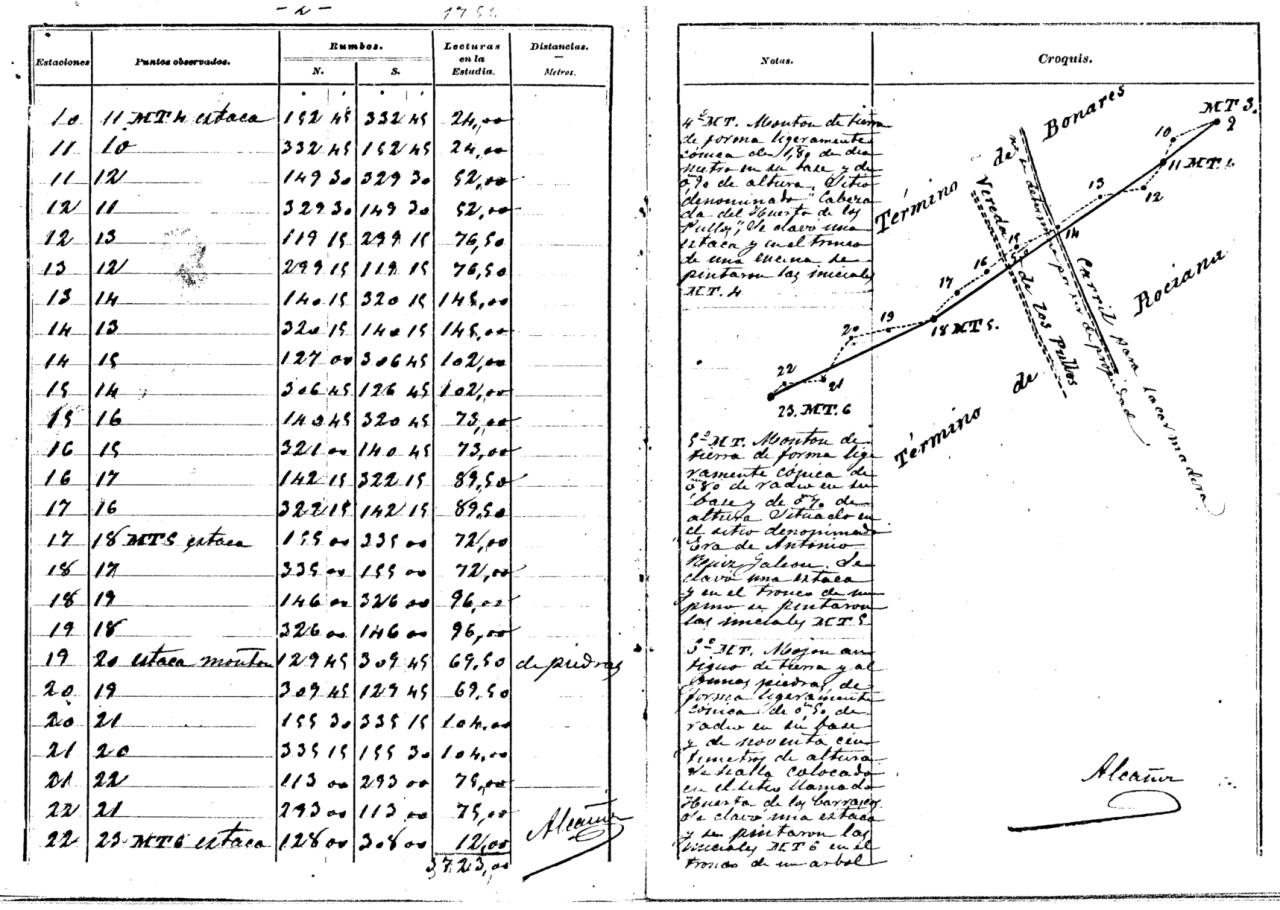 - 2 -
Estaciones Puntos observados. Rumbos. N. S. Lecturas en la Estadia. Distancias. — Metros.
10 11 MT 4 estaca 152 45 332 45 24,00
11 10 332 45 152 45 24,00
11 12 149 30 329 30 52,00
12 11 329 30 149 30 52,00
12 13 119 15 299 15 76,50
13 12 299 15 119 15 76,50
13 14 140 15 320 15 145,00
14 13 320 15 140 15 145,00
14 15 127 00 306 45 102,00
15 14 306 45 126 45 102,00
15 16 140 45 320 45 73,00
16 15 321 00 140 45 73,00
16 17 142 15 322 15 89,50
17 16 322 15 142 15 89,50
17 18 MT5 estaca 155 00 335 00 72,00
18 17 335 00 155 00 72,00
18 19 146 00 326 00 96,00
19 18 326 00 146 00 96,00
19 20 estaca monton 129 45 309 45 69,50 de piedras
20 19 309 45 129 45 69,50
20 21 155 30 335 15 104,00
21 20 335 15 155 30 104,00
21 22 113 00 293 00 75,00
22 21 293 00 113 00 75,00
22 23 MT6 estaca 128 00 308 00 12,00
3,723,00
Alcañiz
Notas. Croquis.
4º MT. Monton de tierra
de forma ligeramente
cónica de 1,80 de diá
metro en su base y de
0m90 de altura. Sitio
denominado "Cabeza
da del Huerto de los
Pullos", Se clavó una
estaca y en el tronco
de una encina se
pintaron las iniciales
MT. 4
5º MT. Monton de
tierra de forma lige
ramente cónica de
0m80 de radio en su
base y de 0m70 de
altura Situado en
el sitio denominado
"Era de Antonio
Ruiz Galeon. Se
clavó una estaca
y en el tronco de un
pino se pintaron
las iniciales MT5
MT. Mojon an
tiguo de tierra y al
gunas piedras de
forma ligeramente
cónica de 0m50 de
radio en su base
y de noventa cen
timetros de altura
Se halla colocado
en el sitio llamado
Huerta de los
Se clavó una estaca
y se pintaron las
iniciales MT6 en el
tronco de un arbol
MT 3.
9
10
11 MT. 4
12
13
14
15
16
17
18 MT5.
19
20
21
22
23. MT. 6
Término de Bonares
Término de Rociana
Vereda de los Pullos
no se determina por ser de propiedad
Carril para sacar madera
Alcañiz